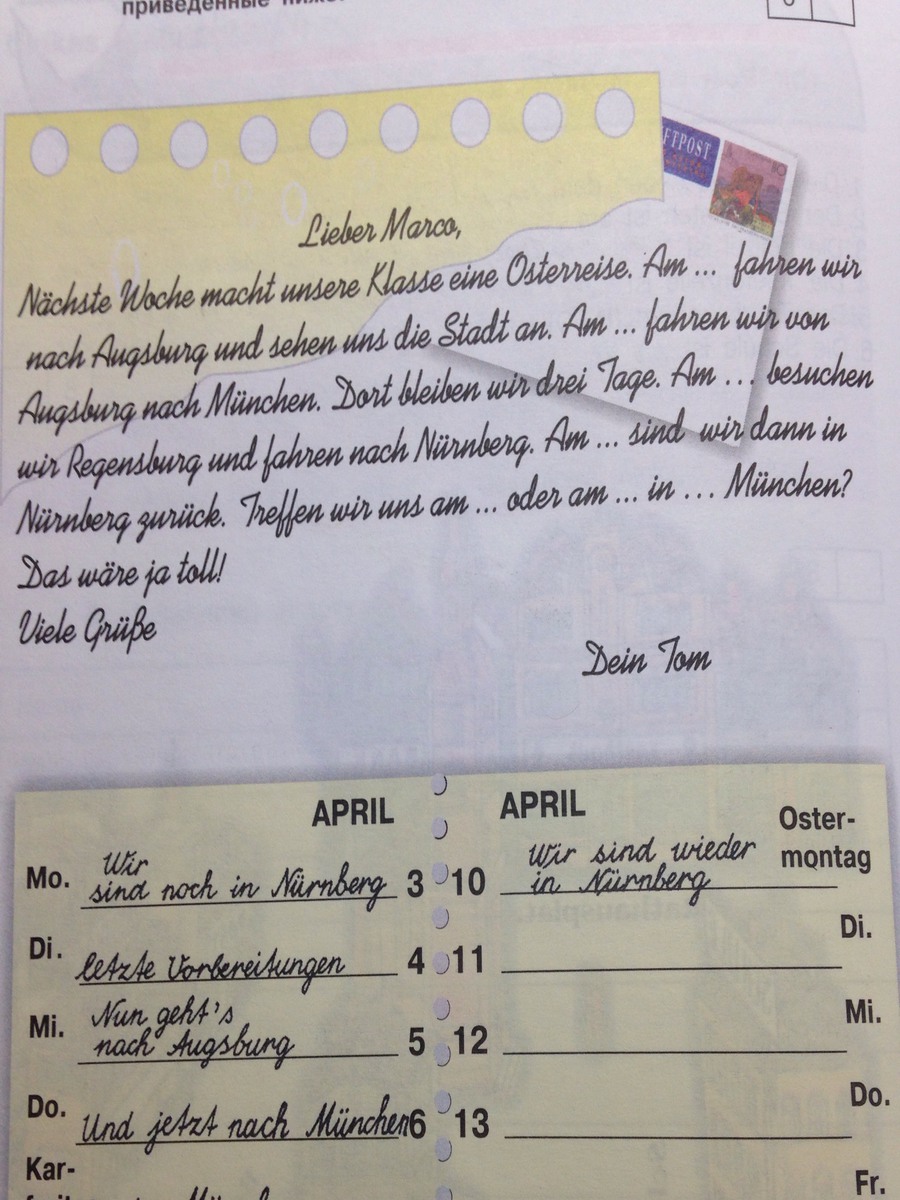 приведенные ниже.
FTPOST
Lieber Marco,
Nächste Woche macht unsere Klasse eine Osterreise. Am ... fahren wir
nach Augsburg und sehen uns die Stadt an. Am ... fahren wir von
Augsburg nach München. Dort bleiben wir drei Tage. Am ... besuchen
wir Regensburg und fahren nach Nürnberg. Am ... sind wir dann in
Nürnberg zurück. Treffen wir uns am ... oder am ... in ... München?
Das wäre ja toll!
Viele Grüße
Dein Tom
APRIL
Mo. Wir
sind noch in Nürnberg 3
Di. letzte Vorbereitungen 4
Mi. Nun geht's
nach Augsburg 5
Do. Und jetzt nach München 6
Kar-
APRIL
Oster-
montag
10 Wir sind wieder
in Nürnberg
11 Di.
12 Mi.
13 Do.
Fr.